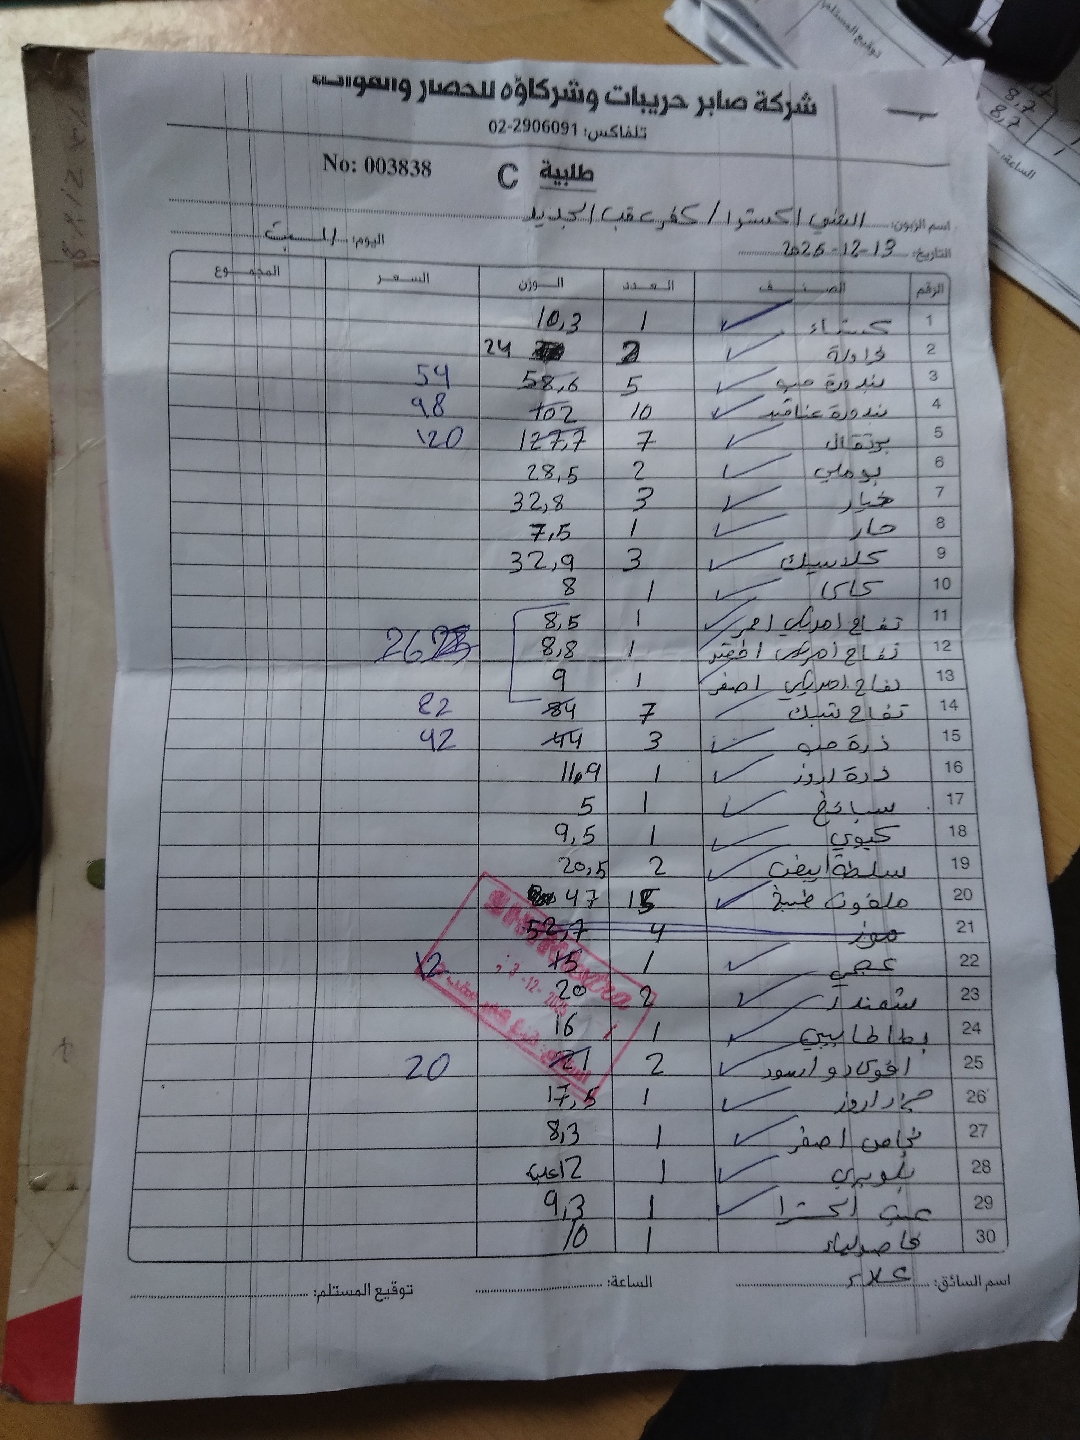 شركة صابر حريبات وشركاؤه للخضار والفواكه
تلفاكس: 02-2906091
طلبية C No: 003838
اسم الزبون: الشني اكسترا / كفر عقب الجديد
اليوم: السبت
التاريخ: 13-12-2025
الرقم الصنف العدد الوزن السعر المجموع
1 كستناء 1 10,3
2 فراولة 2 24
3 بندورة حب 5 58,6 54
4 بندورة عناقيد 10 102 98
5 برتقال 7 127,7 120
6 بوملي 2 28,5
7 خيار 3 32,8
8 حار 1 7,5
9 كلاسيك 3 32,9
10 كاكا 1 8
11 تفاح امريكي احمر 1 8,5
12 تفاح امريكي اخضر 1 8,8 26
13 تفاح امريكي اصفر 1 9
14 تفاح شبك 7 84 82
15 ذرة حب 3 44 42
16 ذرة اروز 1 11,9
17 سبانخ 1 5
18 كيوي 1 9,5
19 سلطة ابيض 2 20,5
20 ملفوف طبيخ 15 47
21 موز 4 52,7
22 عجمي 1 15 12
23 شمندر 2 20
24 بطاطا بيبي 1 16
25 افوكادو اسود 2 21 20
26 خيار اروز 1 17,5
27 اصفر 1 8,3
28 بلوبيري 1 12 علبة
29 عنب اكسترا 1 9,3
30 فاصولياء 1 10
اسم السائق: علاء الساعة: توقيع المستلم:
توقيع المستلم
8,7
8,7
الساعة: